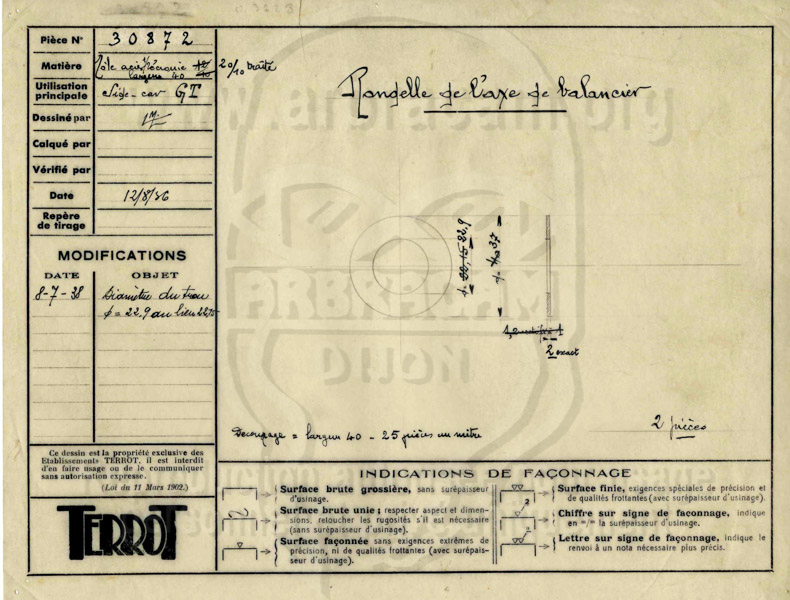 Pièce Nº 30872
Matière Tôle acier décapée 20/10 traité
largeur 40
Utilisation principale Side-car GT
Dessiné par
Calqué par
Vérifié par
Date 12/8/36
Repère de tirage
MODIFICATIONS
DATE OBJET
8-7-38 Diamètre du trou
φ = 22,9 au lieu 22,15
Rondelle de l'axe de balancier
22,15 22,9
37
2 exact
2 pièces
Découpage = largeur 40 - 25 pièces au mètre
www.arbracam.org
ARBRACAM
DIJON
Ce dessin est la propriété exclusive des
Etablissements TERROT, il est interdit
d'en faire usage ou de le communiquer
sans autorisation expresse.
(Loi du 11 Mars 1902.)
TERROT
INDICATIONS DE FAÇONNAGE
Surface brute grossière, sans surépaisseur
d'usinage.
Surface brute unie; respecter aspect et dimen-
sions, retoucher les rugosités s'il est nécessaire
(sans surépaisseur d'usinage).
Surface façonnée sans exigences extrêmes de
précision, ni de qualités frottantes (avec surépais-
seur d'usinage).
Surface finie, exigences spéciales de précision et
de qualités frottantes (avec surépaisseur d'usinage).
Chiffre sur signe de façonnage, indique
en m/m la surépaisseur d'usinage.
Lettre sur signe de façonnage, indique le
renvoi à un nota nécessaire plus précis.